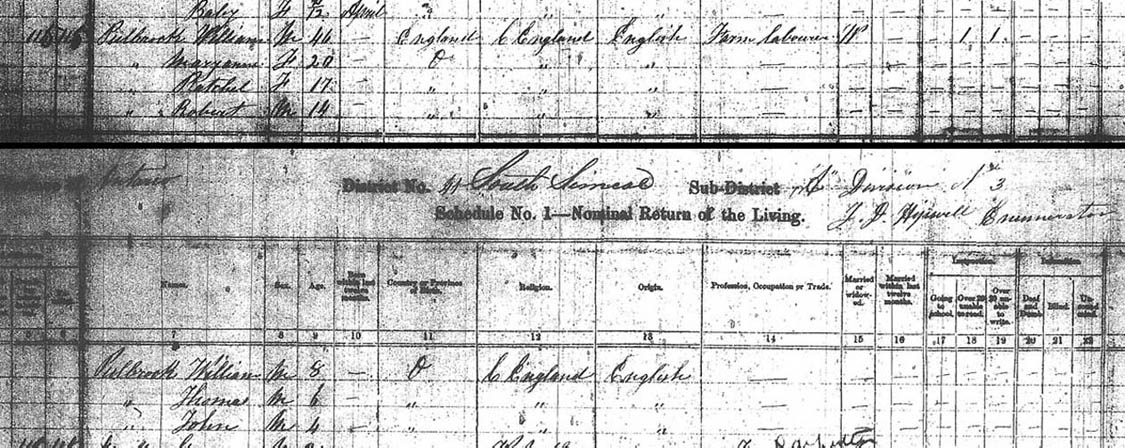 Baby F /12 April "
Pulbrook William M 46 — England C England English Farm labourer W — — 1 1 — — —
" Maryanne F 20 — O " " —
" Ratchel F 17 " " " —
" Robert M 14 " " " —
District No. 41 South Simcoe Sub-District Division No 3
Schedule No. 1—Nominal Return of the Living. Enumerator
Names. Sex. Age. Born within last twelve months. Country or Province of Birth. Religion. Origin. Profession, Occupation or Trade. Married or widowed. Married within last twelve months. Going to school. Over 20 unable to read. Over 20 unable to write. Deaf and Dumb. Blind. Unsound mind.
5 6 7 8 9 10 11 12 13 14 15 16 17 18 19 20 21 22
Pulbrook William M 8 — O C England English —
" Thomas M 6 — " " " —
" John M 4 — " " " —